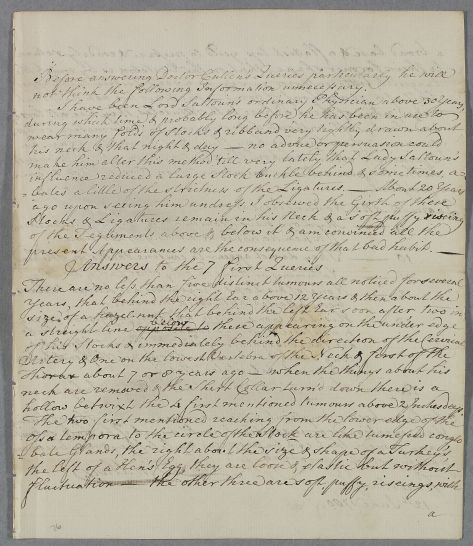 Before answering Doctor Cullens Queries particularly he will
not think the following Information unnecessary.
I have been Lord Saltouns ordinary Physician above 30 Years
during which time & probably long before he has been in use to
wear many folds of Stocks & ribband very tightly drawn about
his neck & that night & day — no advice or persuasion could
make him alter this method till very lately that Lady Saltouns
influence reduced a large Stock buckle behind & sometimes, a=
=bates a litle of the strictness of the Ligatures. — About 20 Years
ago upon seeing him undress, I observed the Girth of these
Stocks & Ligatures remain in his Neck & a soft puffy rising
of the Teguments above & below it & am convinced all the
present Appearances are the consequence of that bad habit. —
Answers to the 7 first Queries
There are no less than five distinct tumours all noticed for several
Years, that behind the right Ear above 12 Years & then about the
size of a hazel nut, that behind the left Ear soon after two in
a straight line below these appearing on the under edge
of his Stocks & immediately behind the direction of the Cervical
Artery & One on the lowest Vertebra of the Neck & first of the
Thorax about 7 or 8 years ago — when the things about his
neck are removed & the Shirt Collar turn'd down there is a
hollow betwixt the 4 first mentioned tumours above 2 Inches deep.
The two first mentioned reaching from the lower edge of the
Ossa tempora to the circle of the Stock are like tumefied conglo
bate Glands, the right about the size & shape of a Turkey's
the left of a Hens Egg, they are loose & elastic but without
fluctuation — the other three are soft, puffy, riseings, with
a